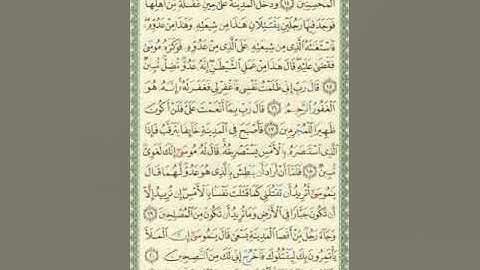 ٱلْمُحْسِنِينَ ١٤ وَدَخَلَ ٱلْمَدِينَةَ عَلَىٰ حِينِ غَفْلَةٍ مِّنْ أَهْلِهَا
فَوَجَدَ فِيهَا رَجُلَيْنِ يَقْتَتِلَانِ هَٰذَا مِن شِيعَتِهِۦ وَهَٰذَا مِنْ عَدُوِّهِۦ
فَٱسْتَغَٰثَهُ ٱلَّذِى مِن شِيعَتِهِۦ عَلَى ٱلَّذِى مِنْ عَدُوِّهِۦ فَوَكَزَهُۥ مُوسَىٰ
فَقَضَىٰ عَلَيْهِ قَالَ هَٰذَا مِنْ عَمَلِ ٱلشَّيْطَٰنِ إِنَّهُۥ عَدُوٌّ مُّضِلٌّ مُّبِينٌ
١٥ قَالَ رَبِّ إِنِّى ظَلَمْتُ نَفْسِى فَٱغْفِرْ لِى فَغَفَرَ لَهُۥٓ إِنَّهُۥ هُوَ
ٱلْغَفُورُ ٱلرَّحِيمُ ١٦ قَالَ رَبِّ بِمَآ أَنْعَمْتَ عَلَىَّ فَلَنْ أَكُونَ
ظَهِيرًا لِّلْمُجْرِمِينَ ١٧ فَأَصْبَحَ فِى ٱلْمَدِينَةِ خَآئِفًا يَتَرَقَّبُ فَإِذَا
ٱلَّذِى ٱسْتَنصَرَهُۥ بِٱلْأَمْسِ يَسْتَصْرِخُهُۥ قَالَ لَهُۥ مُوسَىٰٓ إِنَّكَ لَغَوِىٌّ
مُّبِينٌ ١٨ فَلَمَّآ أَنْ أَرَادَ أَن يَبْطِشَ بِٱلَّذِى هُوَ عَدُوٌّ لَّهُمَا قَالَ
يَٰمُوسَىٰٓ أَتُرِيدُ أَن تَقْتُلَنِى كَمَا قَتَلْتَ نَفْسًۢا بِٱلْأَمْسِ إِن تُرِيدُ إِلَّآ
أَن تَكُونَ جَبَّارًا فِى ٱلْأَرْضِ وَمَا تُرِيدُ أَن تَكُونَ مِنَ ٱلْمُصْلِحِينَ ١٩
وَجَآءَ رَجُلٌ مِّنْ أَقْصَا ٱلْمَدِينَةِ يَسْعَىٰ قَالَ يَٰمُوسَىٰٓ إِنَّ ٱلْمَلَأَ
يَأْتَمِرُونَ بِكَ لِيَقْتُلُوكَ فَٱخْرُجْ إِنِّى لَكَ مِنَ ٱلنَّٰصِحِينَ ٢٠